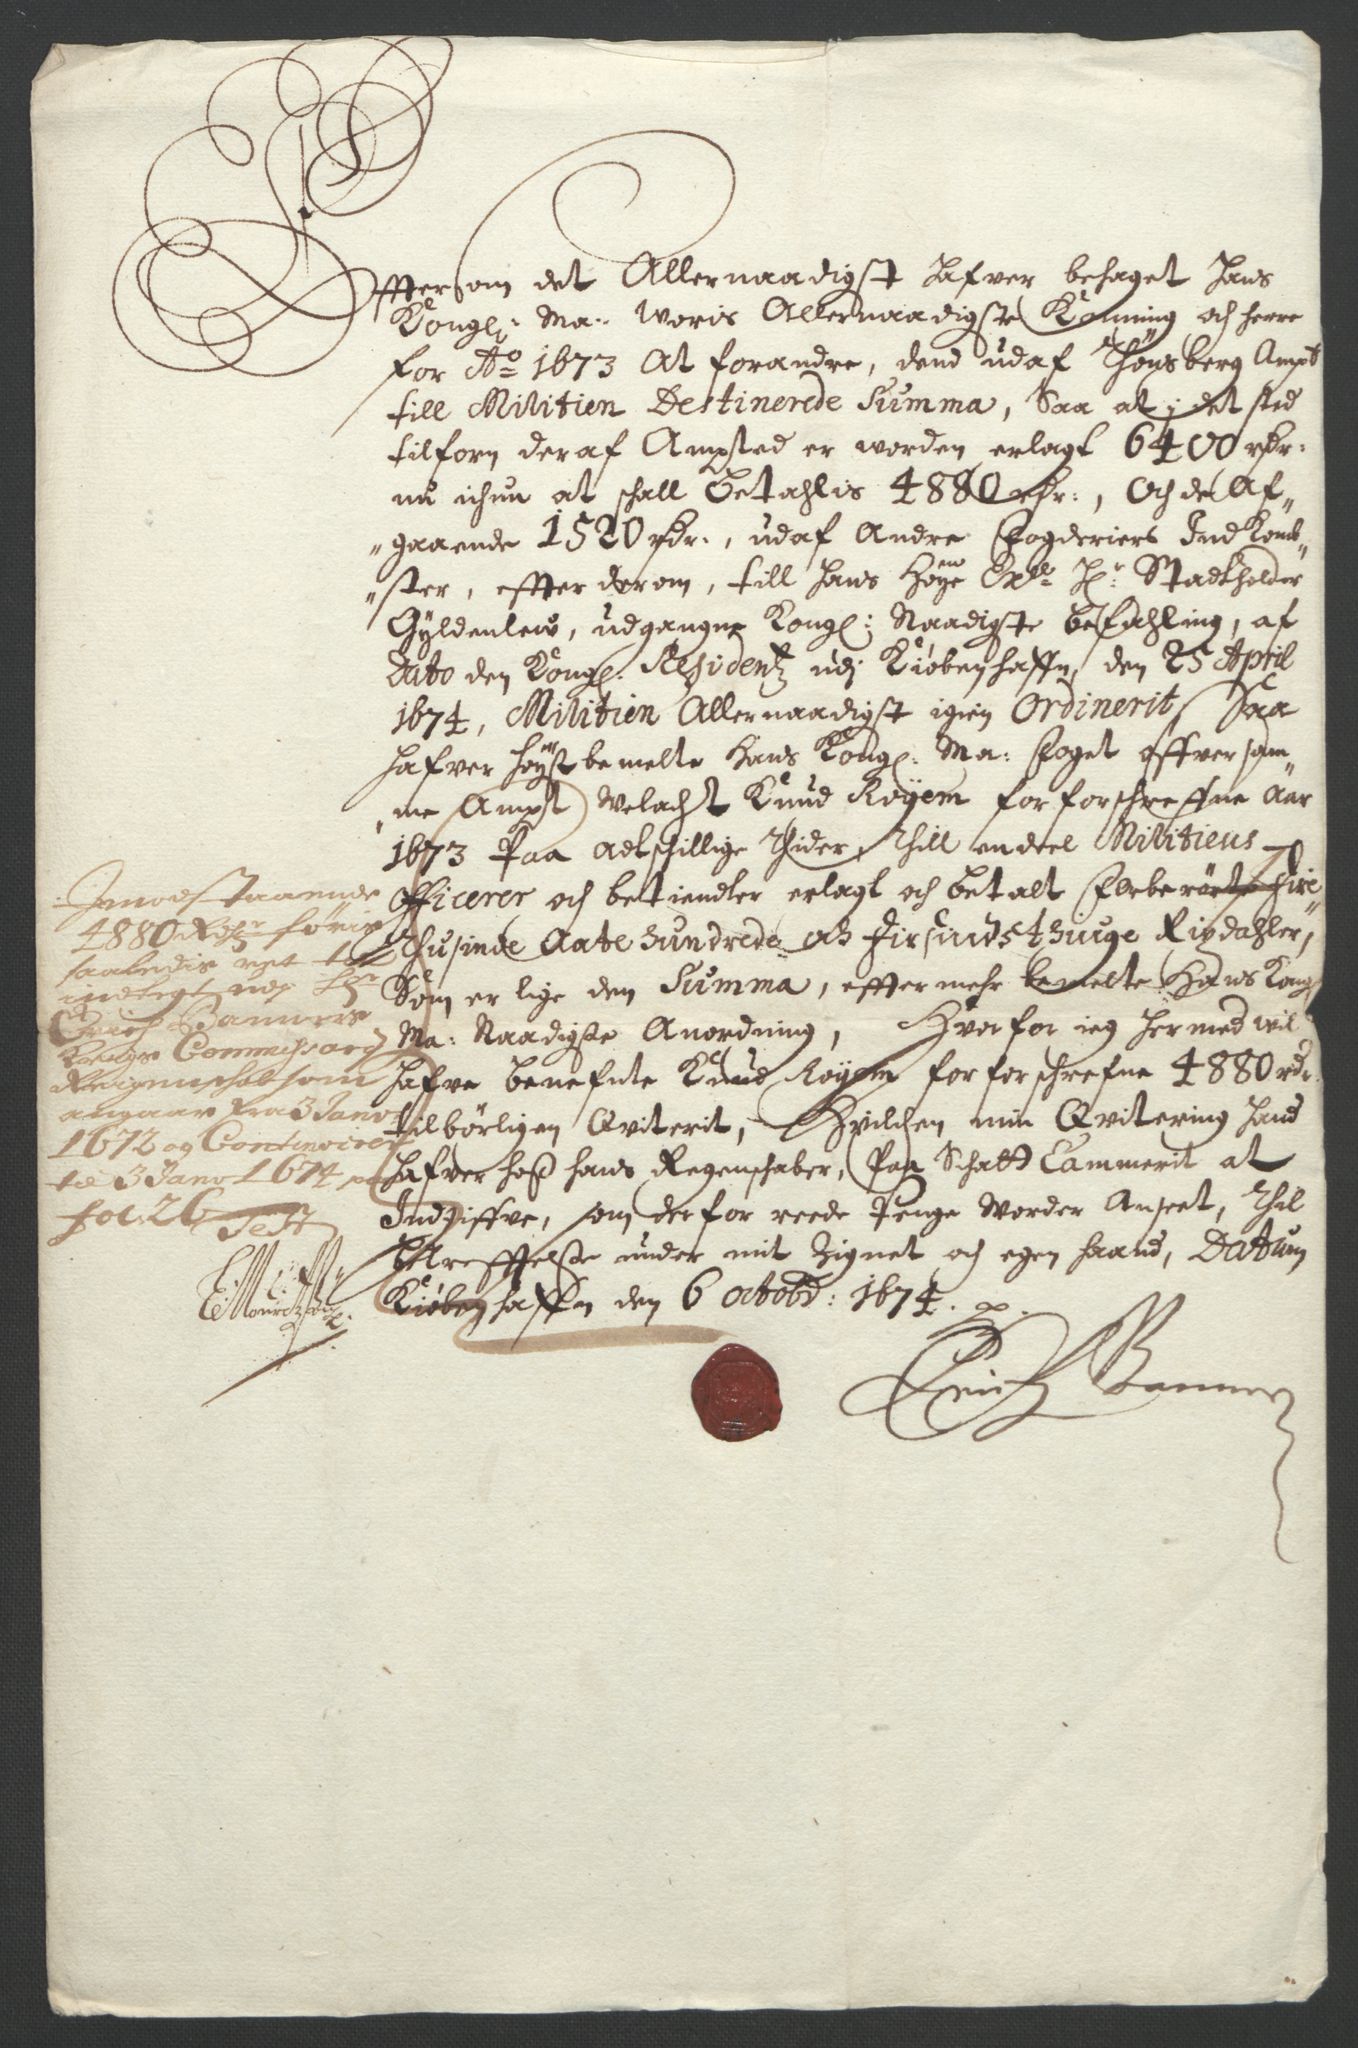 Efftersom det Allernaadigst hafver behaget Hans
Kongl: Ma: Woris Allernaadigste Konning och Herre
for Ao 1673 At forandre, dend udaf Thønsberg Ampt
till Militien Destinerede Summa, Saa at i det sted
tilforn deraf Ampted er worden erlagt 6400 rdr:
nu ichun at schall betahlis 4880 rdr:, Och de Af-
gaaende 1520 rdr:, udaf Andre Fogderiers Indkomb-
ster, effter derom, till Hans Høye Exle Hr Stadtholder
Gyldenlew, udgangne Kongl: Naadigste befahling, af
Dato den Kongl: Residentz udj Kiøbenhaffn, den 25 April
1674, Militien Allernaadigst igien Ordinerit, Saa
hafver høystbemelte Hans Kongl: Ma: Foget offver sam-
me Ampt Welacht Knud Røyem for forschreffne Aar
1673 Paa adtschillige Thider, Thill endeel Militiens
Officerer och betiendter erlagt och betalt forberørte Fire
Thusinde Aate Hundrede och Firsindsthiuge Rixdahler,
Som er lige den Summa, effter mehr bemelte Hans Kongl
Ma: Naadigste Anordning, Hvorfor ieg hermed wil
hafve benefnte Knud Røyem for forschrefne 4880 rdr:
tilbørligen Qviterit, Hvilchen min Qvitering hand
hafver hoss hans Regenschaber, Paa Schatt Cammerit at
Indgiffve, som derfor reede Penge Worder Anseet, Thil
bekreffttelse under mit Zignet och egen haand, Datum
Kiøbenhaffn den 6 octobr: 1674.
Erich Banner
Imodstaaende
4880 Rdr føris
saaledis ret til
indtegt udj Hr
Erich Banners
Krigs Commissari
Reigenschab som
angaar fra 3 Jano
1672 og Continuerer
til 3 Jano 1674
fol: 26 Test
E Mouritzen